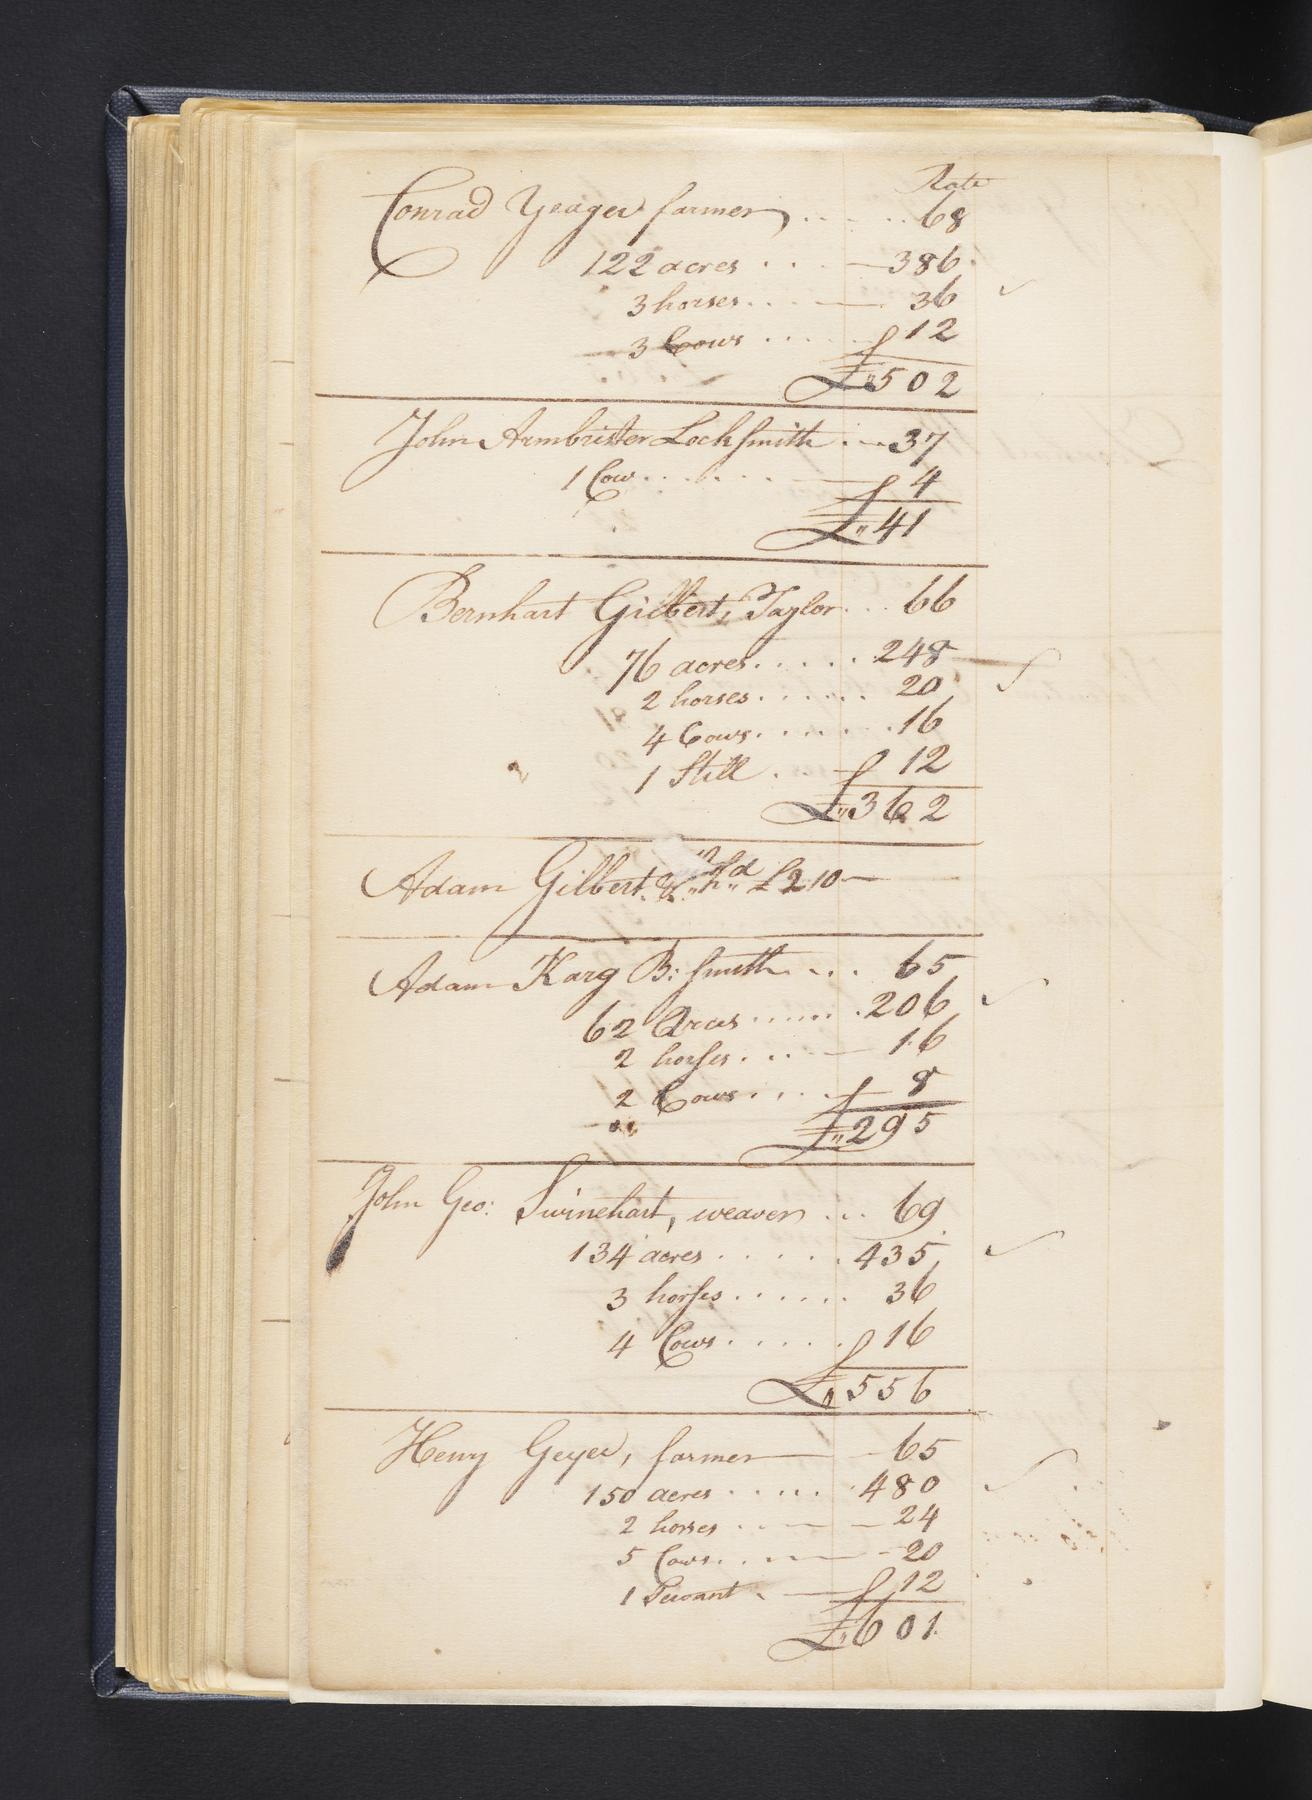 Rate
Conrad Yeager farmer ..... 68
122 acres ... — 386
3 horses ... — 36
3 Cows ..... 12
£"502
John Armbrister Locksmith ... 37
1 Cow ...... — 4
£"41
Bernhart Gilbert, Taylor ... 66
76 acres ..... 248
2 horses ...... 20
4 Cows ...... 16
1 Still ... — 12
£"362
Adam Gilbert £210—
Adam Karg B: Smith ... 65
62 Acres ...... 206
2 horses .... — 16
2 Cows .... — 8
£"295
John Geo: Swinehart, weaver ... 69
134 acres ...... 435
3 horses ...... 36
4 Cows ..... 16
£"556
Henry Geyer, farmer — 65
150 acres ..... 480
2 horses ... — 24
5 Cows ... — 20
1 Servant . — 12
£"601